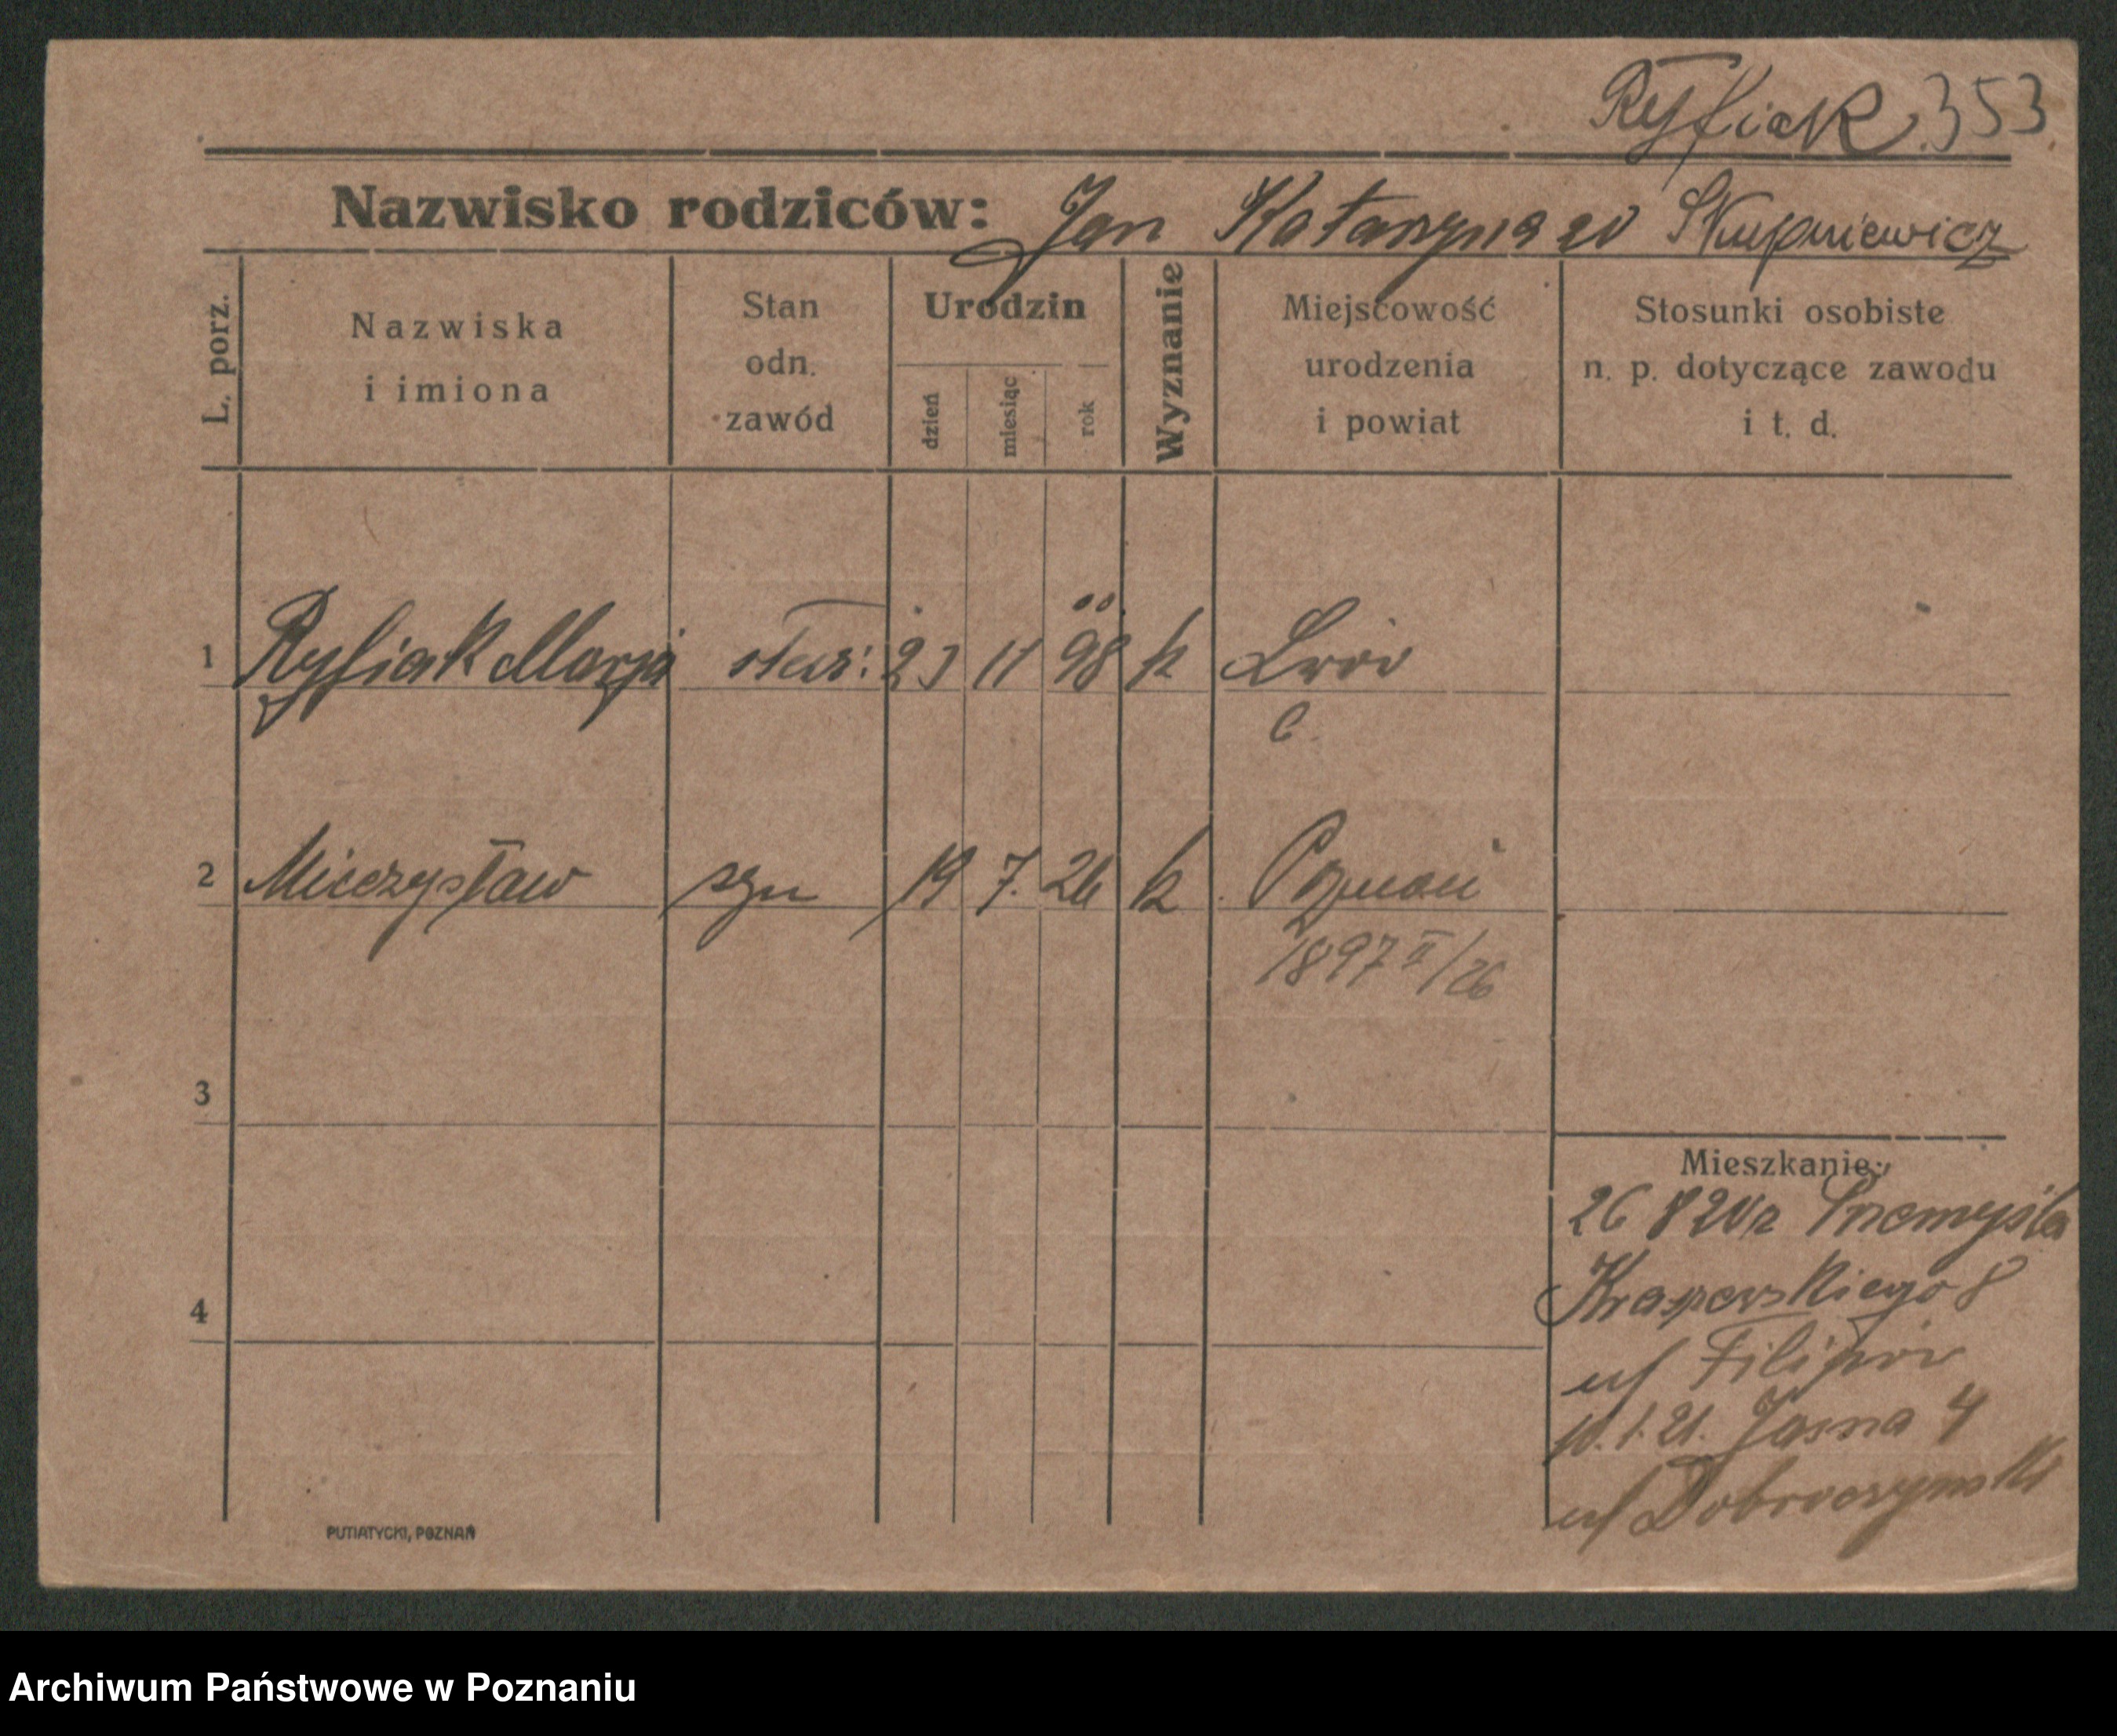 Ryfiak 353
Nazwisko rodziców: Jan Katarzyna zd Skupniewicz
L. porz.
Nazwiska i imiona
Stan odn. zawód
Urodzin
dzień miesiąc rok
Wyznanie
Miejscowość urodzenia i powiat
Stosunki osobiste n. p. dotyczące zawodu i t. d.
1 Ryfiak Marja służ: 23 11 98 k Lwów
2 Mieczysław syn 19 7. 26 k Poznań
1897 II/26
3
Mieszkanie:
26 8 20 z Przemyśla
4
Kraszewskiego 8
u/ Filipów
10. 1. 21. Jasna 4
u/ Dobroczyński
PUTIATYCKI, POZNAŃ
Archiwum Państwowe w Poznaniu